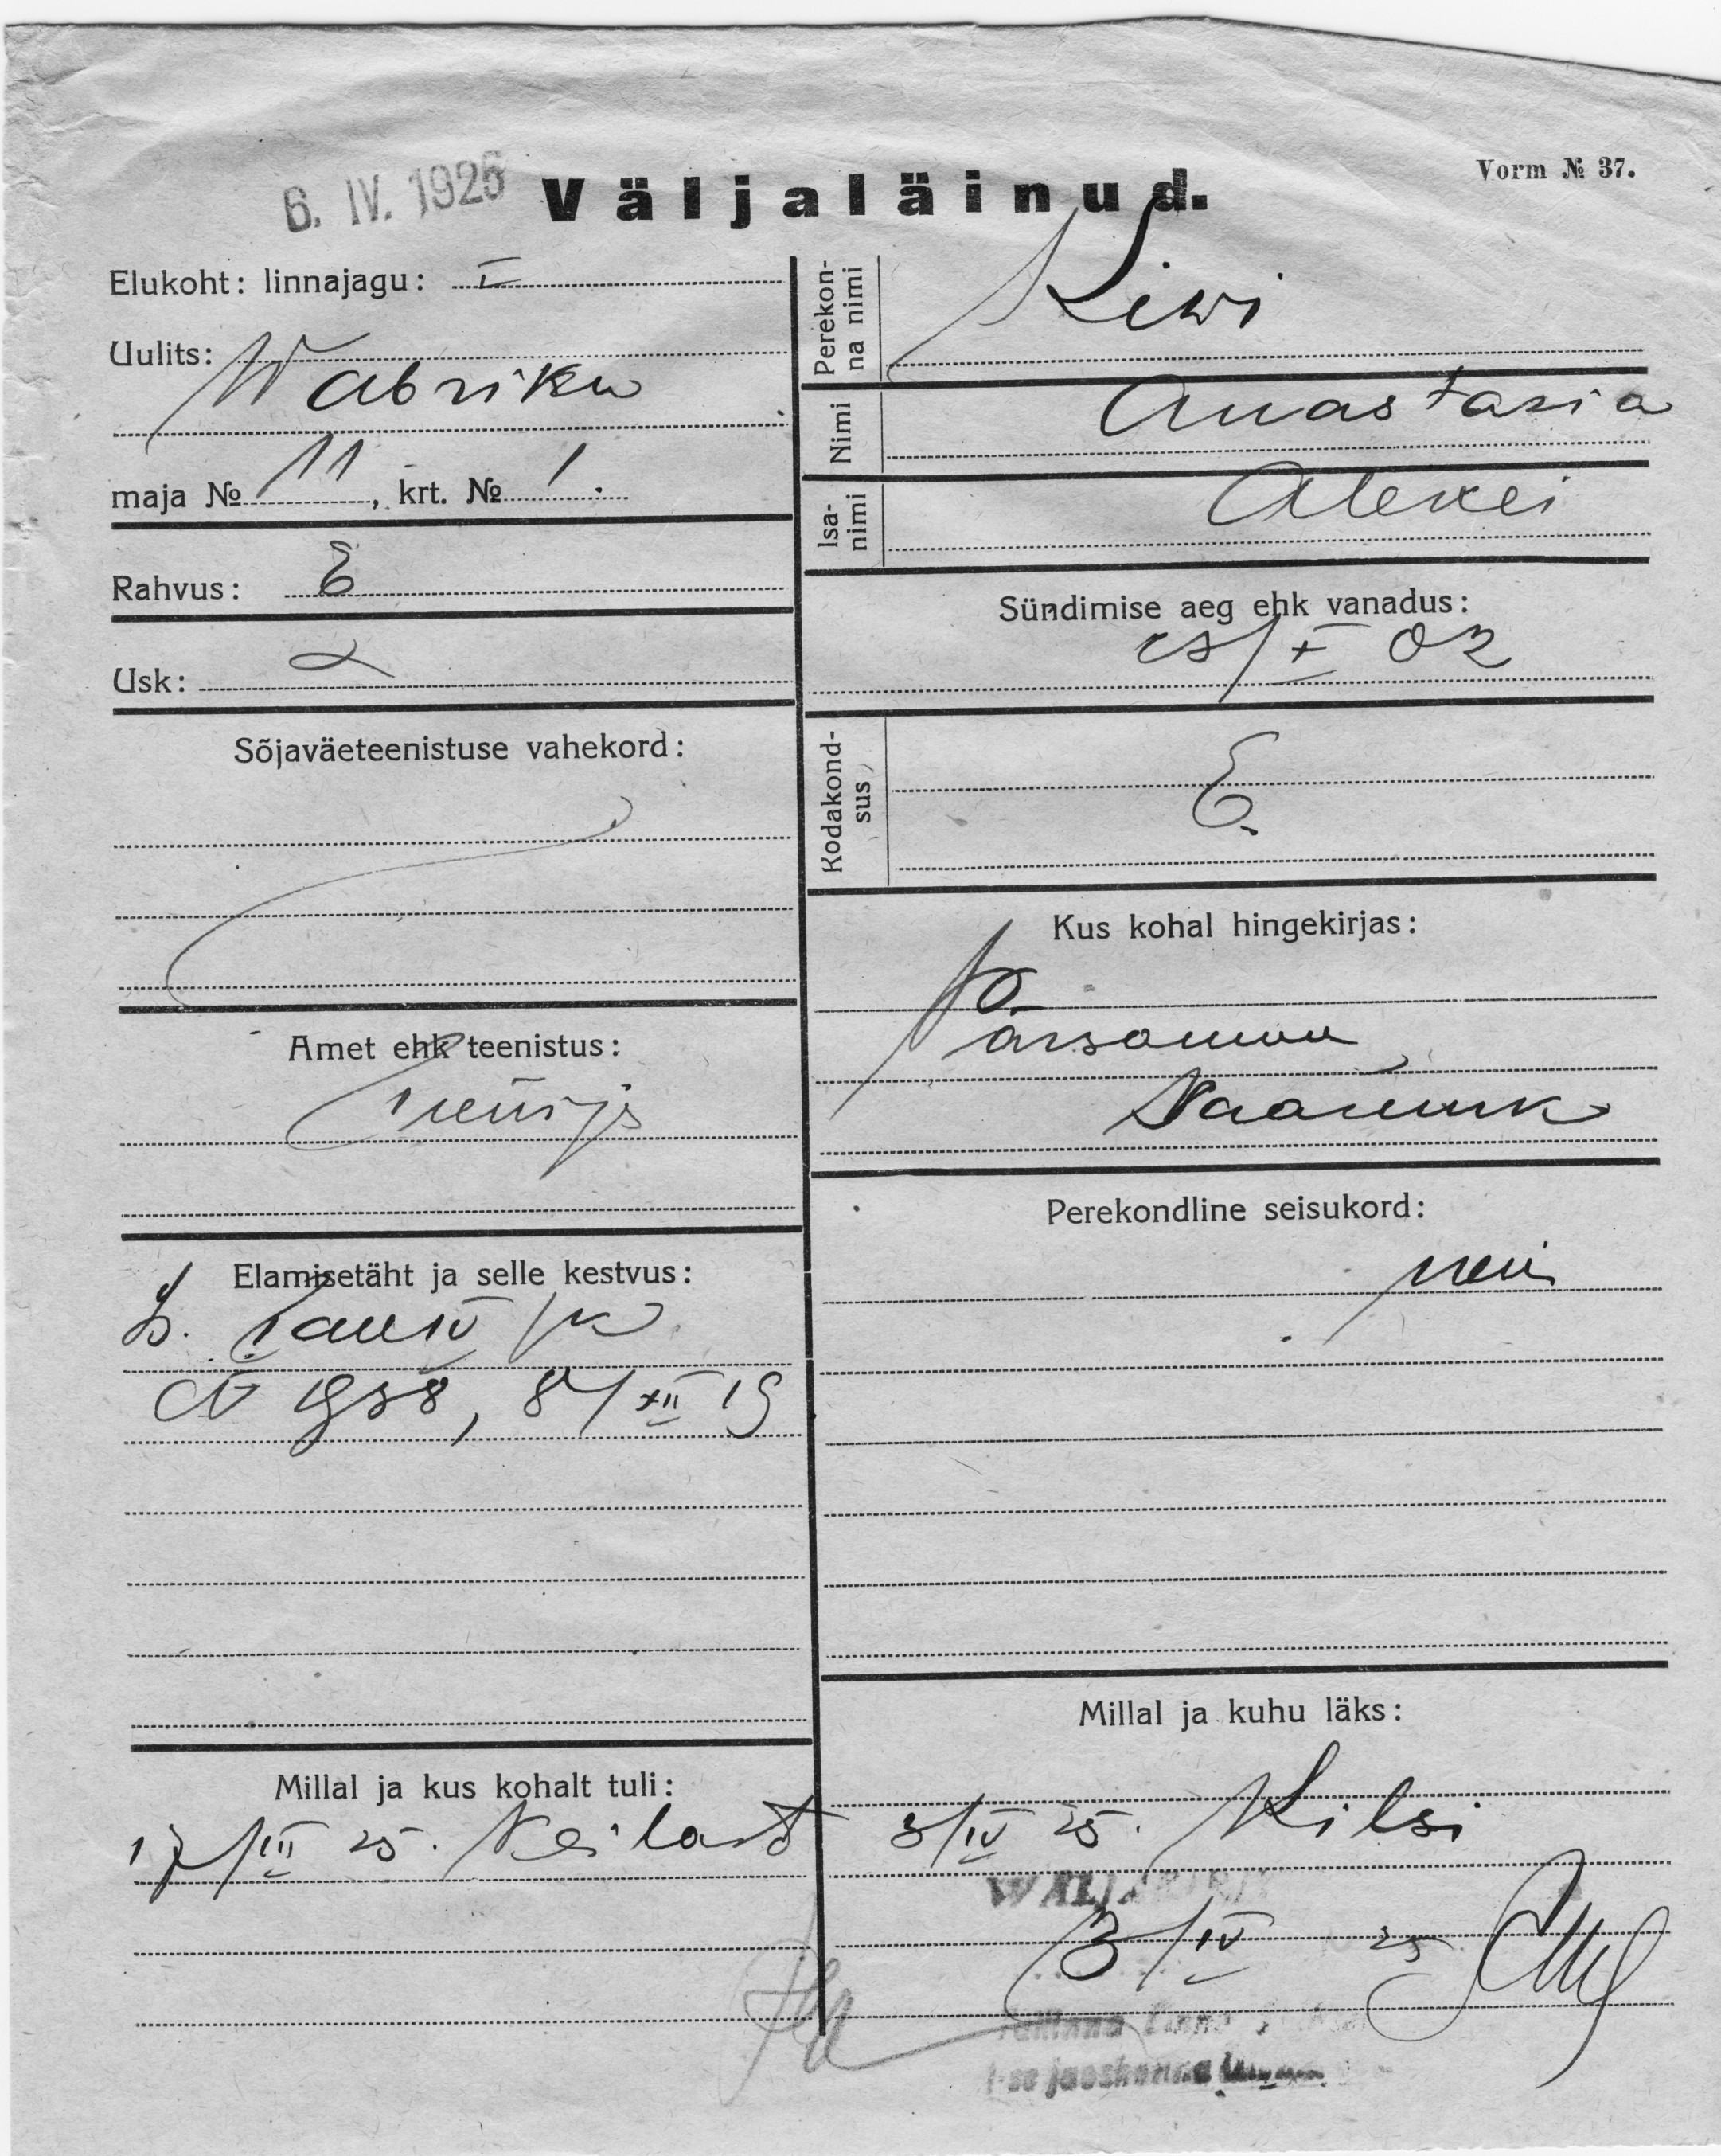 Vorm № 37.
6. IV. 1925 Väljaläinud.
Elukoht: linnajagu: I
Uulits: Wabriku
maja № 11, krt. № 1.
Rahvus: E
Usk:
Sõjaväeteenistuse vahekord:
Amet ehk teenistus:
Teenija
Elamisetäht ja selle kestvus:
№ 1938, 8/XII 19
Millal ja kus kohalt tuli:
17/III 25. Keilast
Perekonna nimi Kiwi
Nimi Anastasia
Isanimi Aleksei
Sündimise aeg ehk vanadus:
/X 02
Kodakondsus E.
Kus kohal hingekirjas:
Pärsamaa
Perekondline seisukord:
nei
Millal ja kuhu läks:
3/IV 25. Kilsi
3/IV 25
Tallinna Linna
I-se jaoskonna